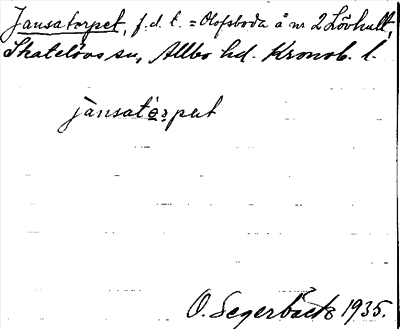 Jansatorpet, f.d. t. = Olofsboda å nr 2 Lövhult,
Skatelövs sn, Allbo hd. Kronob. l.
jansatorpet
O. Segerbäck 1935.